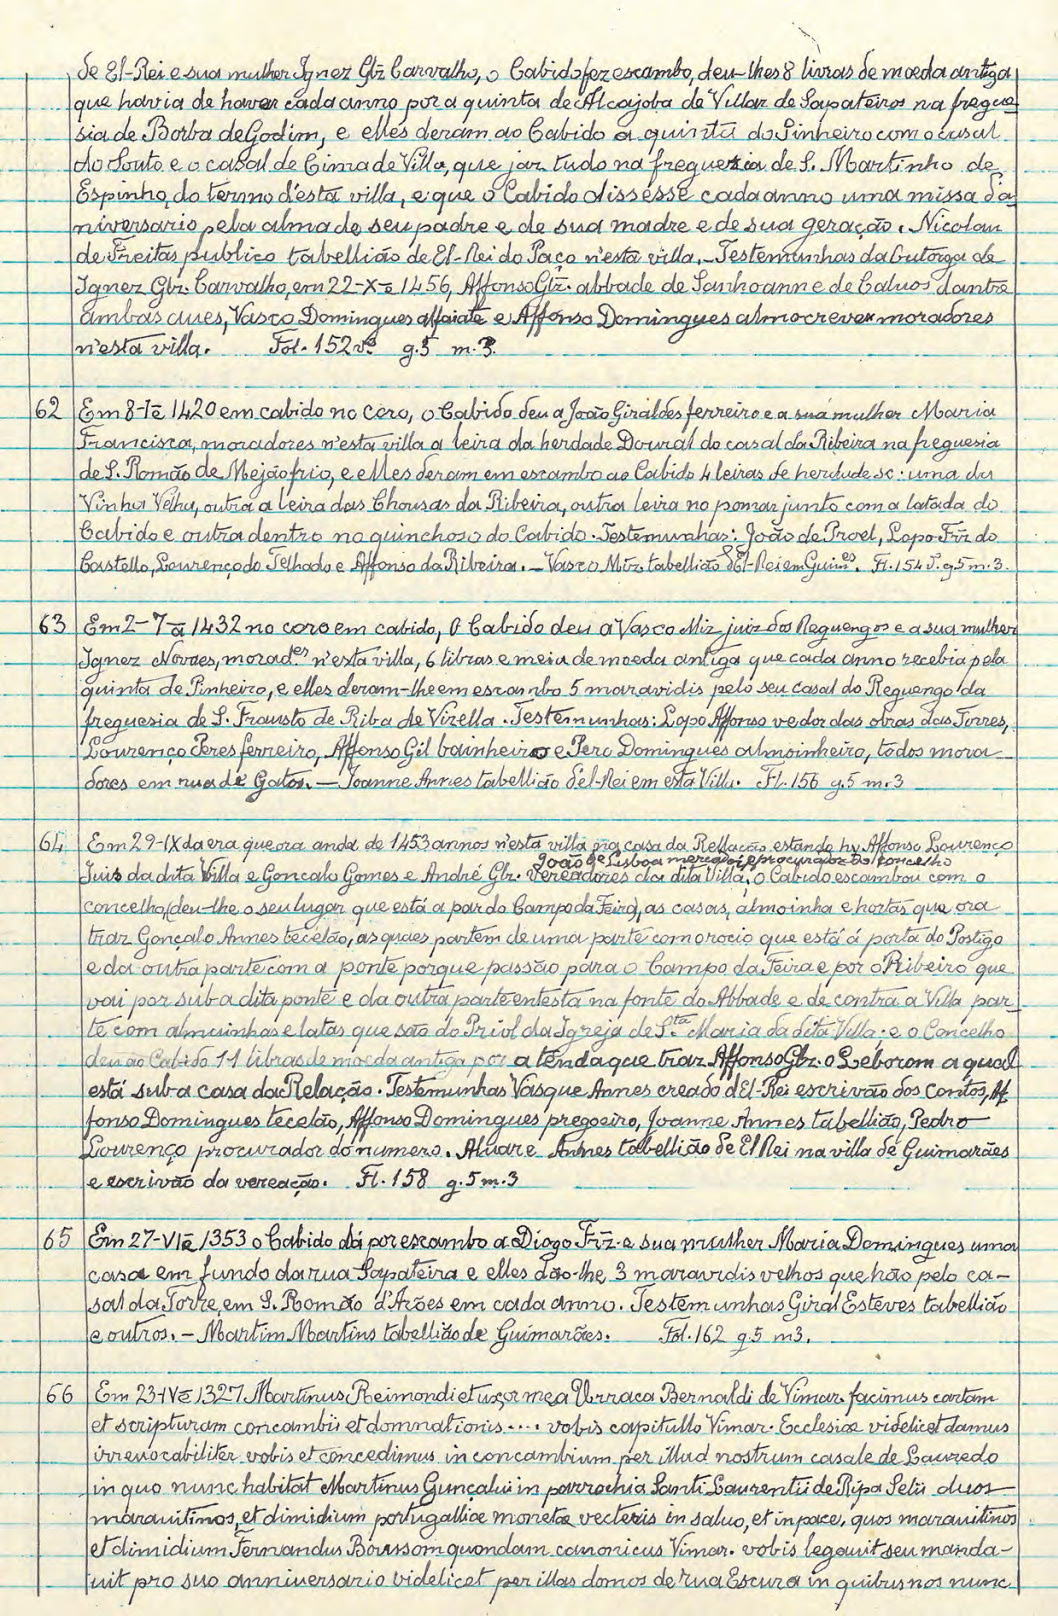 de El-Rei e sua mulher Ignez Glz Carvalho, o Cabido fez escambo, deu-lhes 8 livras de moeda antiga
que havia de haver cada anno por a quinta de Alcajoba de Villar de Sapateiros na fregue
sia de Borba de Godim, e elles deram ao Cabido a quintã do Pinheiro com o casal
do Souto e o casal de Cima de Villa, que jaz tudo na freguezia de S. Martinho de
Espinho do termo d'esta villa, e que o Cabido dissesse cada anno uma missa d'a
niversario pela alma de seu padre e de sua madre e de sua geração. Nicolau
de Freitas publico tabellião de El-Rei do Paço n'esta villa. - Testemunhas da outorga de
Ignez Glz. Carvalho, em 22-X-ª 1456, Affonso Glz. abbade de Sanhoanne de Calvos d'antre
ambas aves, Vasco Domingues alfaiate e Affonso Domingues almocreve moradores
n'esta villa. Fol. 152 vº g. 5 m. 3.
62 Em 8-I-ª 1420 em cabido no coro, o Cabido deu a João Giraldes ferreiro e a sua mulher Maria
Francisca, moradores n'esta villa a leira da herdade Doural do casal da Ribeira na freguesia
de S. Romão de Mejãofrio, e elles deram em escambo ao Cabido 4 leiras de herdade sc: uma da
Vinha Velha, outra a leira das Chousas da Ribeira, outra leira no pomar junto com a latada do
Cabido e outra dentro no quinchoso do Cabido. Testemunhas: João de Proel, Lopo Frz do
Castello, Lourenço do Telhado e Affonso da Ribeira. - Vasco Miz. tabellião d'El-Rei em Guimes. Fl. 154 g. 5 m. 3.
63 Em 2-7-ª 1432 no coro em cabido, O Cabido deu a Vasco Miz juiz dos Reguengos e a sua mulher
Ignez Novaes, morad.es n'esta villa, 6 libras e meia de moeda antiga que cada anno recebia pela
quinta de Pinheiro, e elles deram-lhe em escambo 5 maravidis pelo seu casal do Reguengo da
freguesia de S. Frausto de Riba de Vizella. Testemunhas: Lopo Affonso vedor das obras das Torres,
Lourenço Peres ferreiro, Affonso Gil bainheiro e Pero Domingues almoinheiro, todos mora-
dores em rua de Gatos. - Joanne Annes tabellião d'el-Rei em esta Villa. Fl. 156 g. 5 m. 3
64 Em 29-IX da era que ora anda de 1453 annos n'esta villa na casa da Rellação estando hy Affonso Lourenço
João de Lisboa mercador e procurador do concelho
Juiz da dita Villa e Gonçalo Gomes e André Glz. Vereadores da dita Villa, o Cabido escambou com o
concelho, (deu-lhe o seu lugar que está a par do Campo da Feira), as casas, almoinha e hortas que ora
traz Gonçalo Annes tecelão, as quaes partem de uma parte com o rocio que está á porta do Postigo
e da outra parte com a ponte porque passão para o Campo da Feira e por o Ribeiro que
vai por sub a dita ponte e da outra parte entesta na fonte do Abbade e de contra a Villa par
te com almuinhas e latas que são do Priol da Igreja de S.ta Maria da dita Villa; e o Concelho
deu ao Cabido 11 libras de moeda antiga por a tenda que traz Affonso Glz. o Leborom a qual
está sub a casa da Relação. Testemunhas Vasque Annes creado d'El-Rei escrivão dos contos, Af
fonso Domingues tecelão, Affonso Domingues pregoeiro, Joanne Annes tabellião, Pedro
Lourenço procurador do numero. Alvare Annes tabellião de El Rei na villa de Guimarães
e escrivão da vereação. Fl. 158 g. 5 m. 3
65 Em 27-VI-ª 1353 o Cabido dá por escambo a Diogo Frz e sua mulher Maria Domingues uma
casa em fundo da rua Sapateira e elles dão-lhe 3 maravidis velhos que hão pelo ca-
sal da Torre, em S. Romão d'Arões em cada anno. Testemunhas Giral Esteves tabellião
e outros. - Martim Martins tabellião de Guimarães. Fol. 162 g. 5 m 3.
66 Em 23-IV-ª 1327 Martinus Reimondi et uxor mea Urraca Bernaldi de Vimar. facimus cartam
et scripturam concambii et domnationis.... vobis capitullo Vimar. Ecclesiæ videlicet damus
irrevocabiliter vobis et concedimus in concambium per illud nostrum casale de Lauredo
in quo nunc habitat Martinus Gunçalui in parrochia Santi Laurentii de Ripa Selii duos
marauitinos, et dimidium portugalliæ monetæ vecteris in saluo, et in pace, quos marauitinos
et dimidium Fernandus Boussom quondam canonicus Vimar. vobis legauit seu manda-
uit pro suo anniuersario videlicet per illas domos de rua Escura in quibus nos nunc